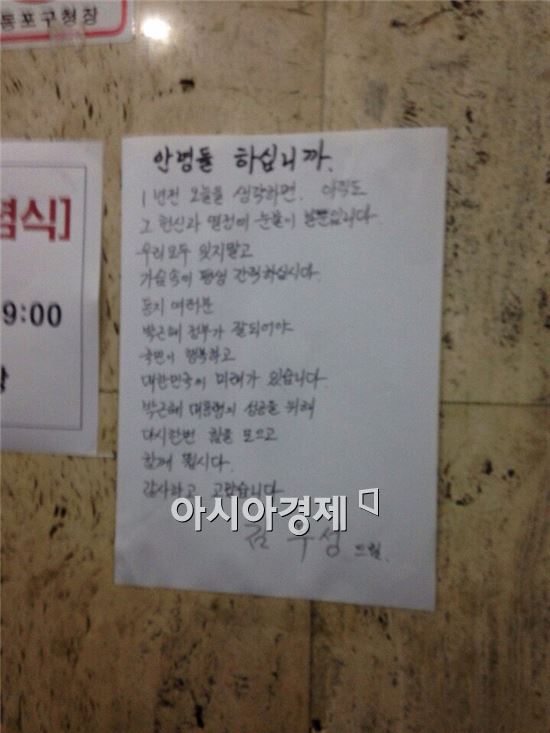 동포구청장
식]
9:00
안녕들 하십니까.
1년전 오늘을 생각하면, 아직도
그 헌신과 열정에 눈물이 날뿐입니다.
우리모두 잊지말고
가슴속에 평생 간직하십시다.
동지 여러분
박근혜 정부가 잘되어야
국민이 행복하고
대한민국이 미래가 있습니다.
박근혜 대통령의 성공을 위해
다시한번 힘을 모으고
함께 뜁시다.
감사하고 고맙습니다.
아시아경제
김무성 드림.